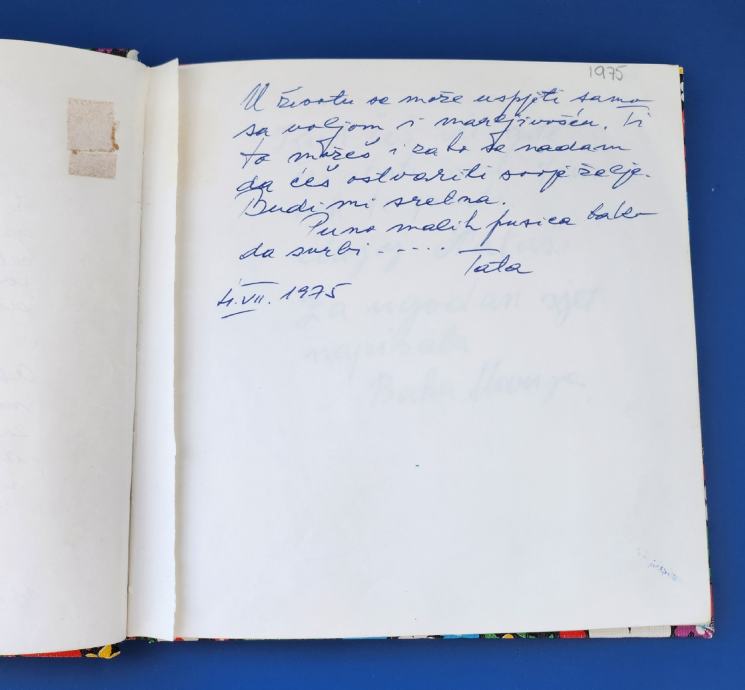 1975
U životu se može uspjeti samo
sa voljom i marljivošću. Ti
to možeš i zato se nadam
da ćeš ostvariti svoje želje.
Budi mi sretna.
Puno malih pusica tako
da svrbi ..... Tata
4.VII. 1975
Za ugodan
napisala
Baka